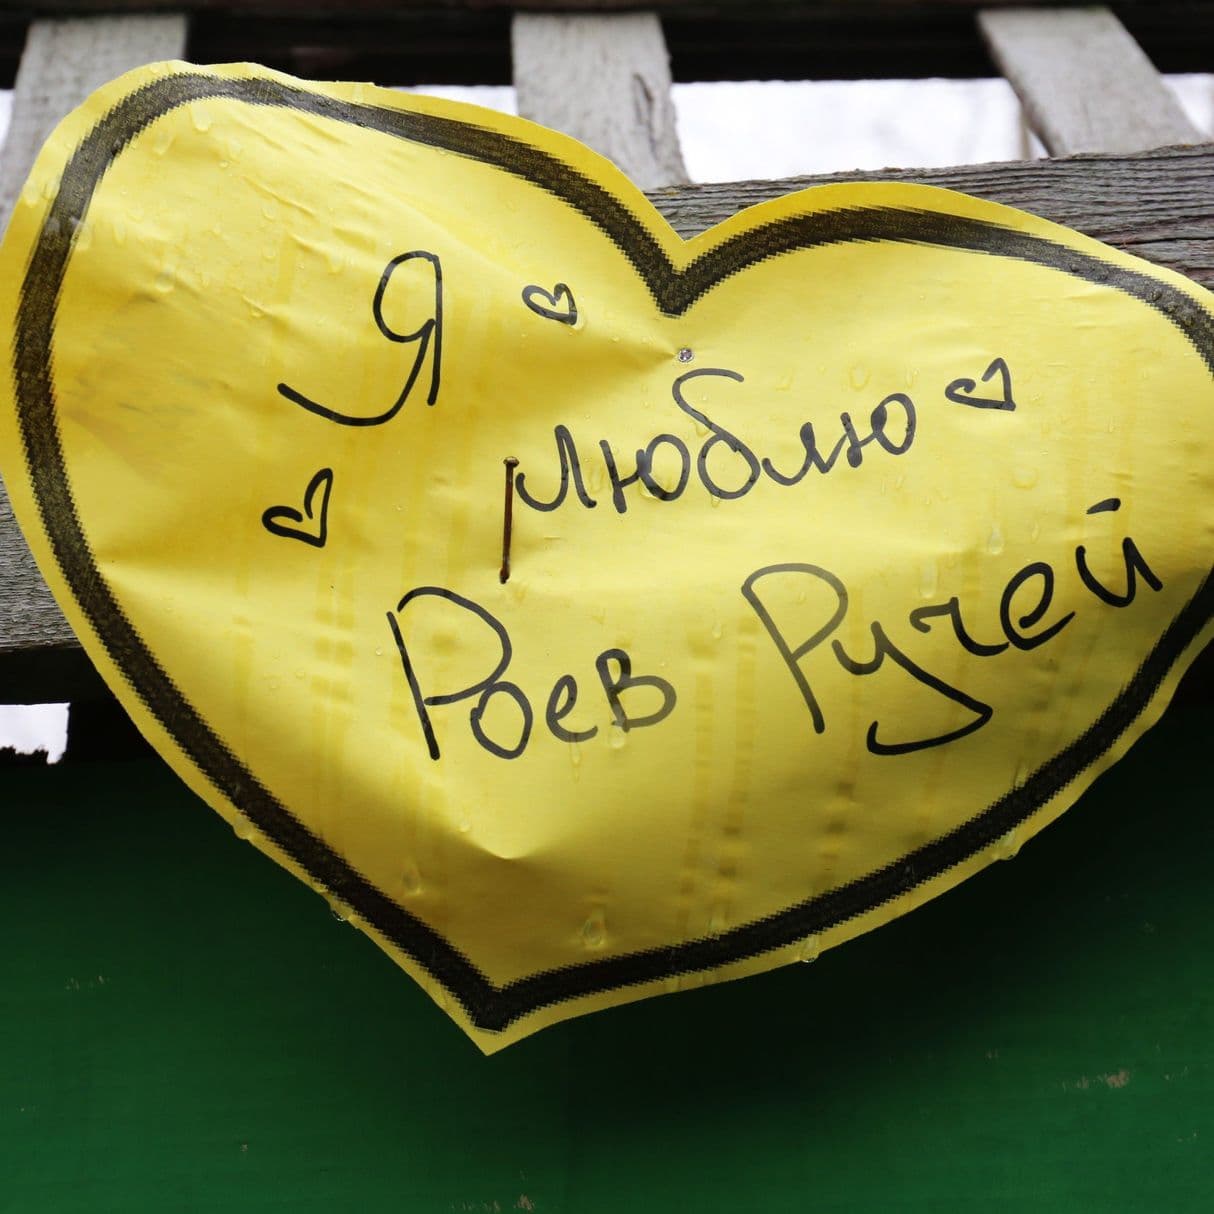 Я
люблю
Роев Ручей